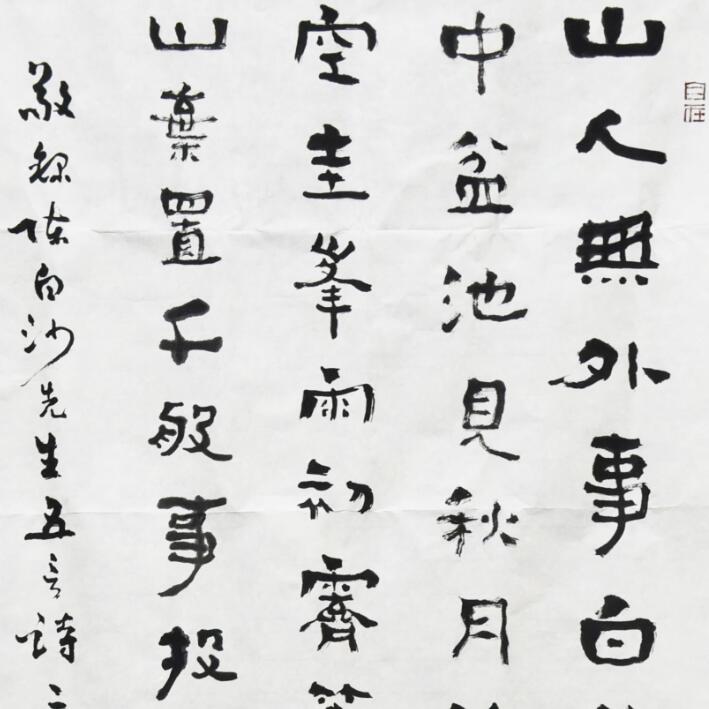 山人無外事白
中盆池見秋月
空圭峯雨初霽
山葉置千般事投
敬録陳白沙先生五言詩
自在